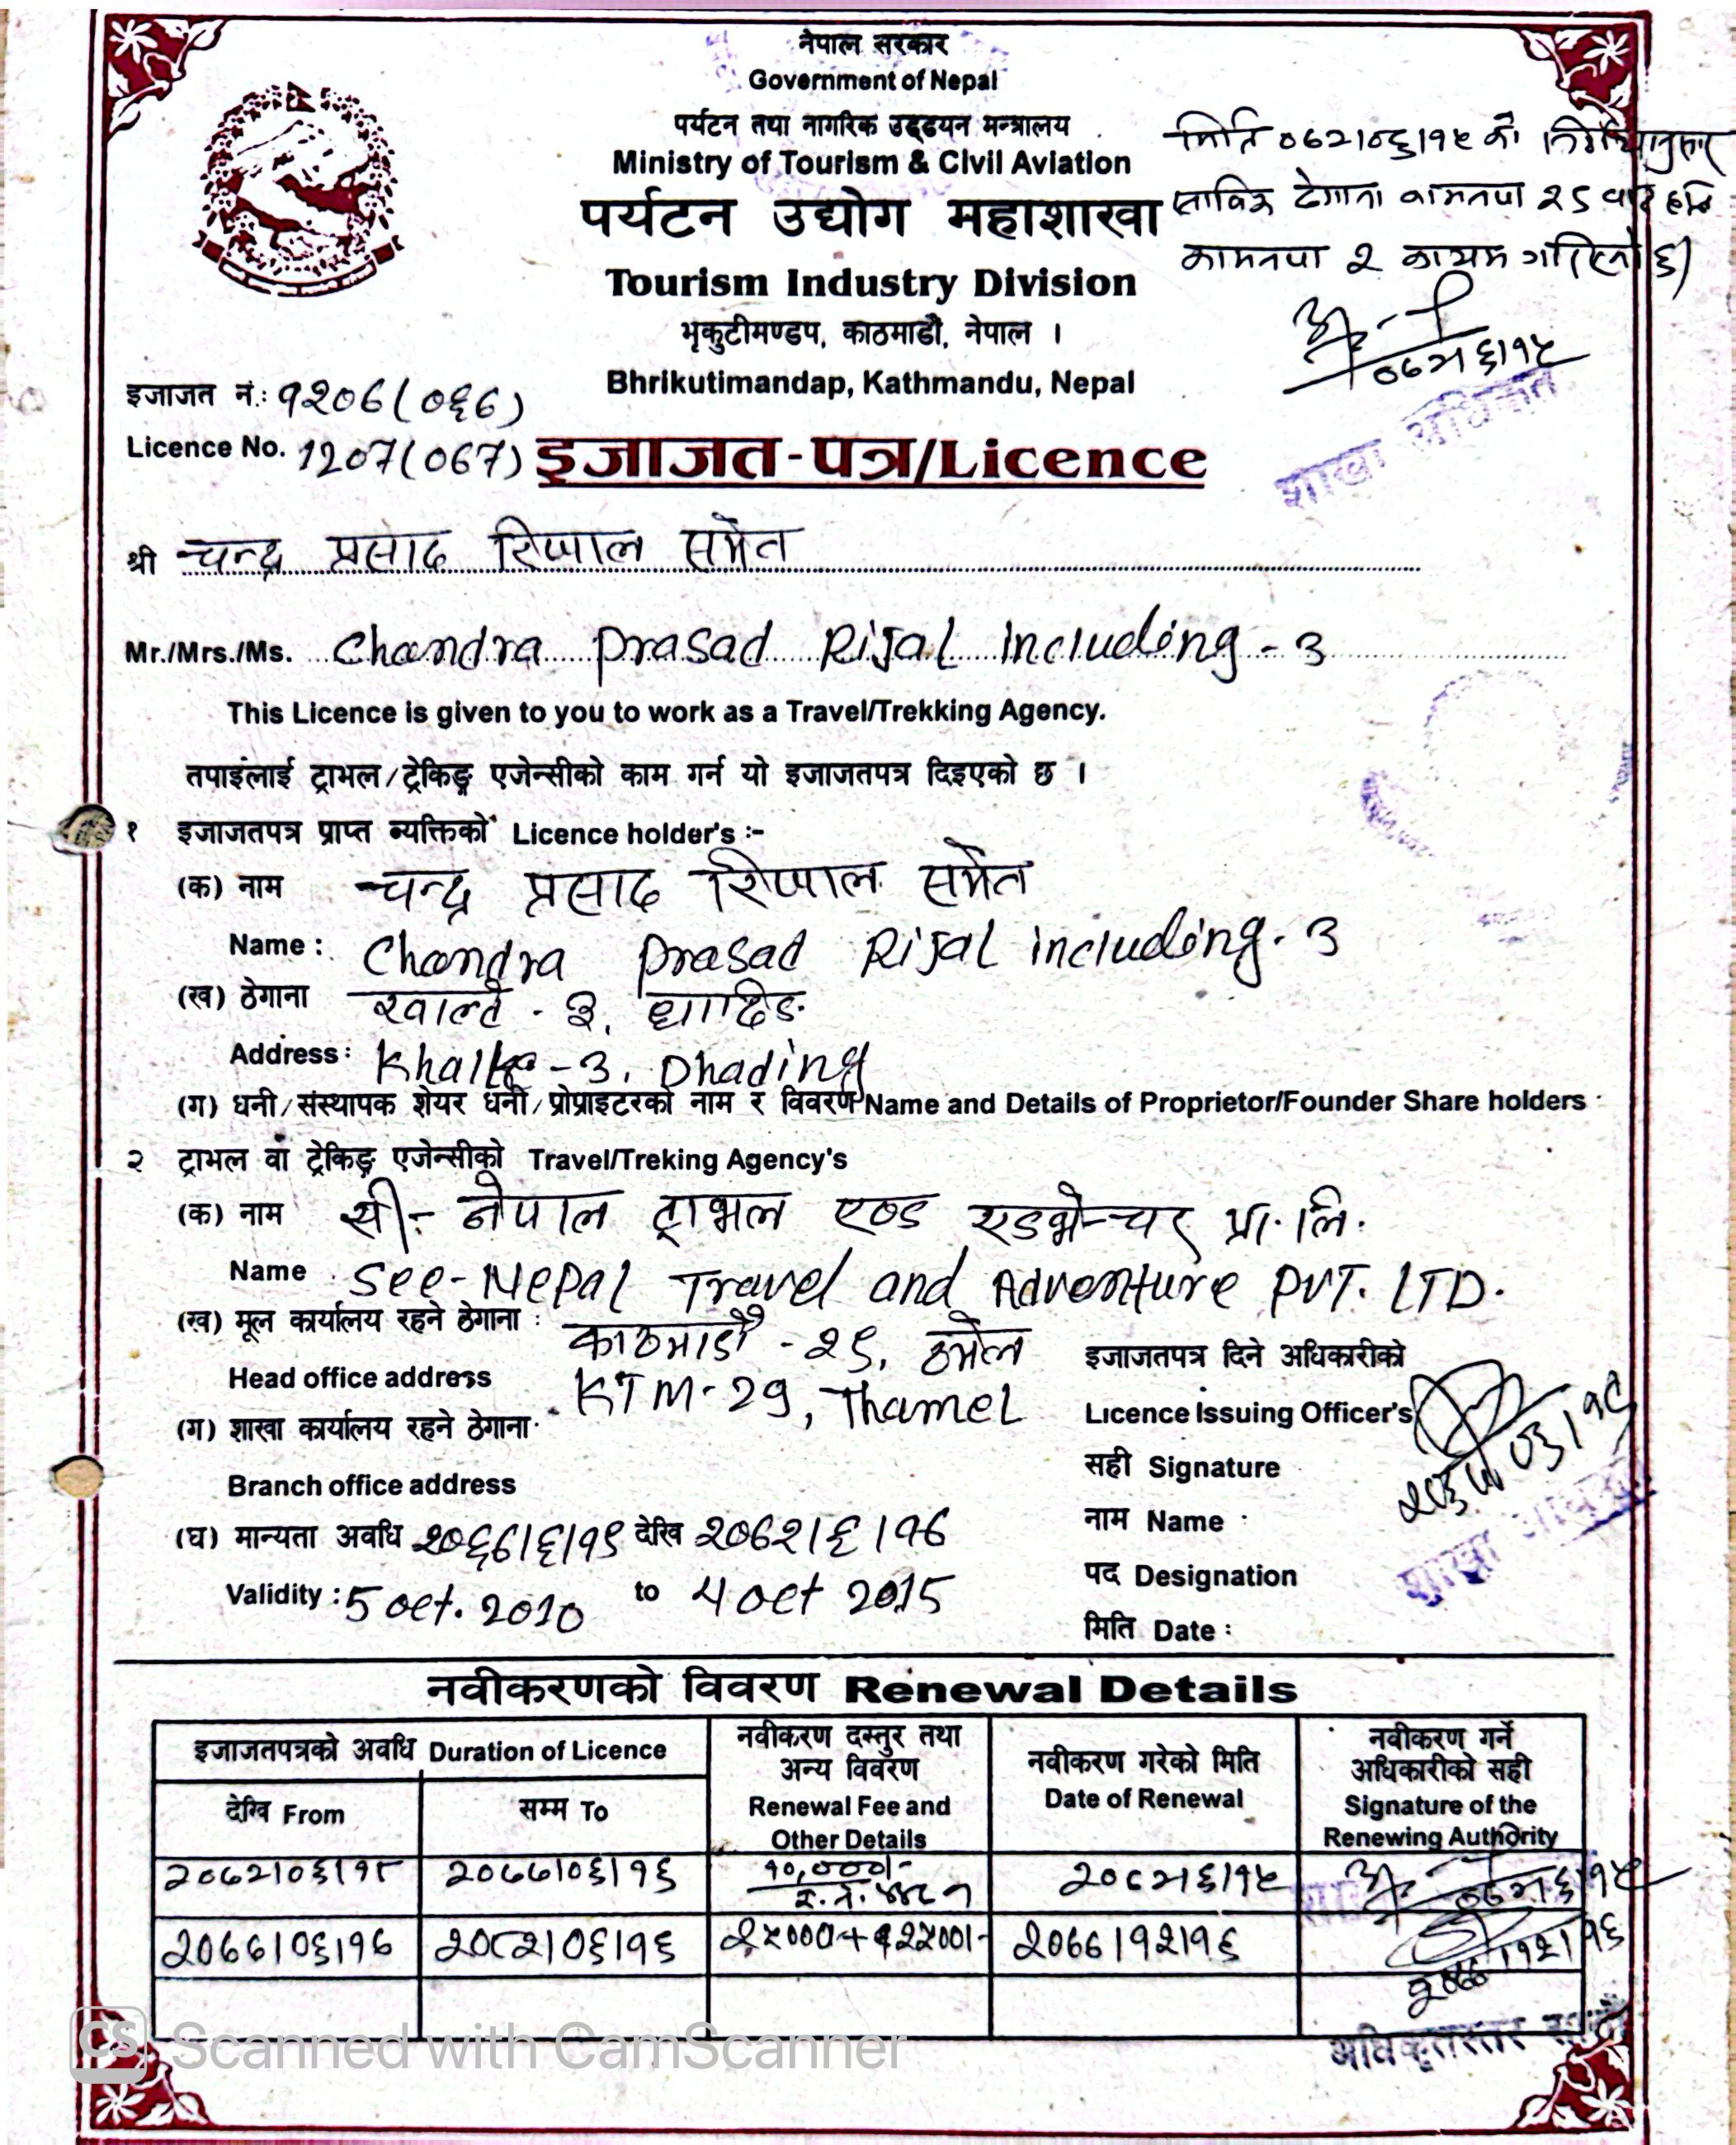 नेपाल सरकार
Government of Nepal
पर्यटन तथा नागरिक उड्डयन मन्त्रालय
Ministry of Tourism & Civil Aviation
पर्यटन उद्योग महाशाखा
Tourism Industry Division
भृकुटीमण्डप, काठमाडौं, नेपाल ।
Bhrikutimandap, Kathmandu, Nepal
मिति ०७२।०६।१५ को निर्णयानुसार
साविक ठेगाना कामनपा २९ बाट हाल
कामनपा २ कायम गरिएको छ।
०७२।६।१५
शाखा अधिकृत
इजाजत नं.: १२०७(०६७)
Licence No. 1207(067)
इजाजत-पत्र/Licence
श्री चन्द्र प्रसाद रिजाल समेत
Mr./Mrs./Ms. Chandra Prasad Rijal Including - 3
This Licence is given to you to work as a Travel/Trekking Agency.
तपाइंलाई ट्राभल/ट्रेकिङ्ग एजेन्सीको काम गर्न यो इजाजतपत्र दिइएको छ ।
१ इजाजतपत्र प्राप्त व्यक्तिको Licence holder's :-
(क) नाम चन्द्र प्रसाद रिजाल समेत
Name : Chandra Prasad Rijal including - 3
(ख) ठेगाना खाल्टे - ३, धादिङ
Address : - 3, Dhading
(ग) धनी/संस्थापक शेयर धनी/प्रोप्राइटरको नाम र विवरण Name and Details of Proprietor/Founder Share holders :
२ ट्राभल वा ट्रेकिङ्ग एजेन्सीको Travel/Treking Agency's
(क) नाम सी- नेपाल ट्राभल एण्ड एडभेन्चर प्रा. लि.
Name See-Nepal Travel and Adventure PVT. LTD.
(ख) मूल कार्यालय रहने ठेगाना : काठमाडौं - २९, ठमेल
Head office address KTM-29, Thamel
(ग) शाखा कार्यालय रहने ठेगाना
Branch office address
(घ) मान्यता अवधि २०६७।६।१९ देखि २०७२।६।१७
Validity : 5 Oct. 2010 to 4 Oct 2015
इजाजतपत्र दिने अधिकारीको
Licence Issuing Officer's
सही Signature
नाम Name :
पद Designation
मिति Date :
शाखा
नवीकरणको विवरण Renewal Details
इजाजतपत्रको अवधि Duration of Licence
देखि From
सम्म To
नवीकरण दस्तुर तथा अन्य विवरण Renewal Fee and Other Details
नवीकरण गरेको मिति Date of Renewal
नवीकरण गर्ने अधिकारीको सही Signature of the Renewing Authority
२०७२।०६।१८ २०७७।०६।१६ १०,०००।- २०७२।६।१५ ०७२।६।१५
२०७७।०६।१७ २०८२।०६।१६ २०७७।१२।१६
CS Scanned with CamScanner